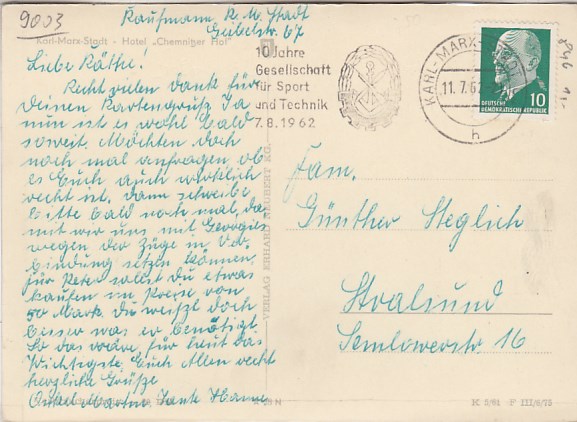 9003
Kaufmann K. M. Stadt
Geibelstr. 67
Karl-Marx-Stadt - Hotel „Chemnitzer Hof"
Liebe Käthe!
Recht vielen Dank für
Deinen Kartengruß. Ja
nun ist es wohl bald
soweit. Möchten doch
noch mal anfragen, ob
es Euch auch wirklich
recht ist. Dann schreibe
bitte bald noch mal, da
mit wir uns mit Georgies
wegen der Züge in Ver
bindung setzen können.
für Peter sollst Du etwas
kaufen im Preise von
50 Mark. Du weißt doch
besser was er benötigt
So das wäre für heut das
Wichtigste. Euch Allen recht
herzliche Grüße
Onkel Martin Tante Hanne
VERLAG ERHARD NEUBERT KG.
10 Jahre
Gesellschaft
für Sport
und Technik
7.8.1962
KARL-MARX-STADT
11.7.62
h
DEUTSCHE
DEMOKRATISCHE REPUBLIK
10
Fam.
Günther Steglich
Stralsund
Semlowerstr. 16
K 5/61 P III/6/75